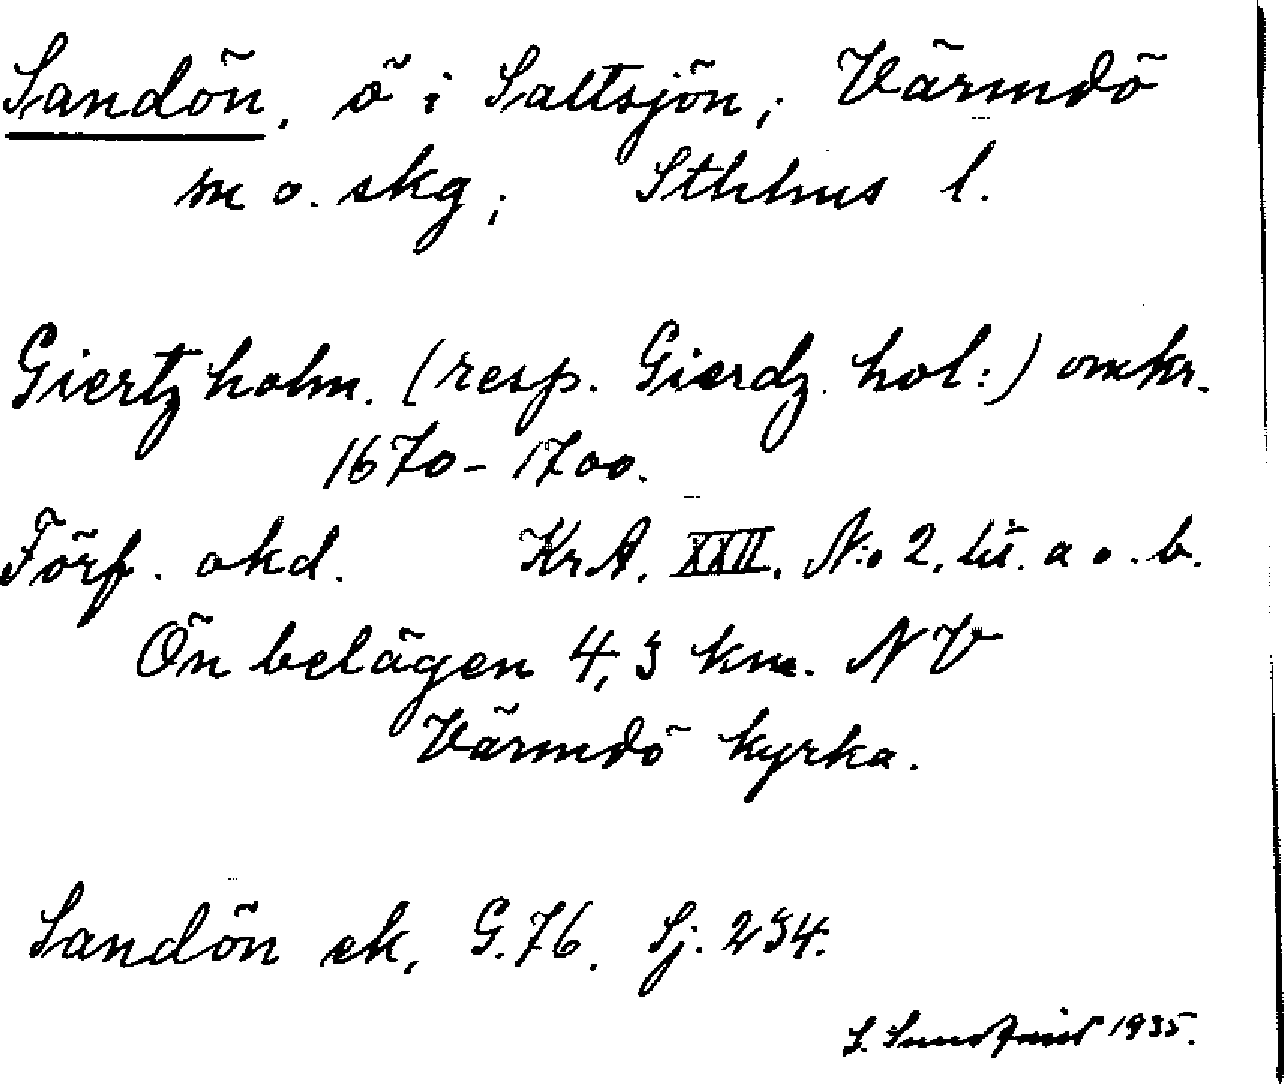 Sandön. ö i Saltsjön; Värmdö
m o. skg; Sthlms l.
Giertz holm. (resp. Gierdz. hol:) omkr.
1670-1700.
Förf. okd. KrA. XXII. N:o 2. lit. a o. b.
Ön belägen 4,3 km. NV
Värmdö kyrka.
Sandön ek. G. 76. Sj. 234.
1935.